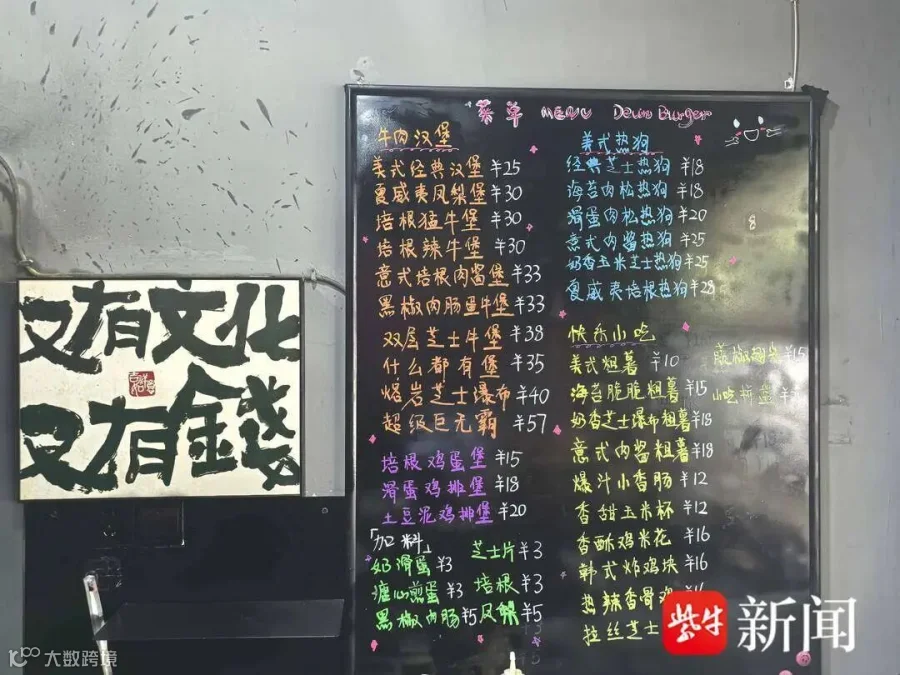 又有文化
又有錢
菜单 MENU Devin Burger
牛肉汉堡
美式经典汉堡 ¥25
夏威夷凤梨堡 ¥30
培根猛牛堡 ¥30
培根辣牛堡 ¥30
意式培根肉酱堡 ¥33
黑椒肉肠蛋牛堡 ¥33
双层芝士牛堡 ¥38
什么都有堡 ¥35
熔岩芝士瀑布 ¥40
超级巨无霸 ¥57
培根鸡蛋堡 ¥15
滑蛋鸡排堡 ¥18
土豆泥鸡排堡 ¥20
「加料」
芝士片 ¥3
奶滑蛋 ¥3
溏心煎蛋 ¥3 培根 ¥3
黑椒肉肠 ¥5 凤梨 ¥5
美式热狗
经典芝士热狗 ¥18
海苔肉松热狗 ¥18
滑蛋肉松热狗 ¥20
意式肉酱热狗 ¥25
奶香玉米芝士热狗 ¥25
夏威夷培根热狗 ¥28
快乐小吃
美式粗薯 ¥10
海苔脆脆粗薯 ¥15
奶香芝士瀑布粗薯 ¥18
意式肉酱粗薯 ¥18
爆汁小香肠 ¥12
香甜玉米杯 ¥12
香酥鸡米花 ¥16
韩式炸鸡块 ¥16
热辣香骨鸡
拉丝芝士
¥15
小吃拼盘
紫牛新闻
大数跨境